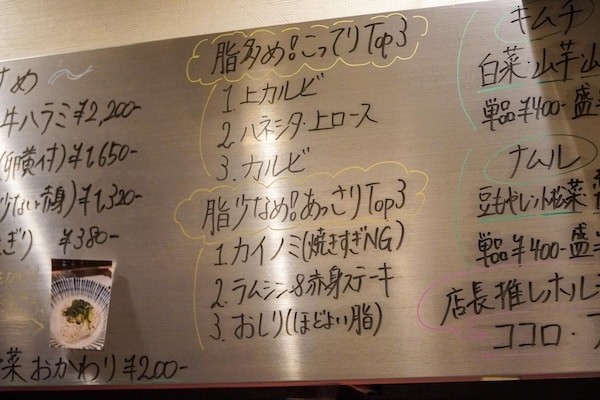 すめ
牛ハラミ ¥2,200-
(卵黄付) ¥1,650-
少ない赤身) ¥1,320-
ぎり) ¥380-
菜おかわり ¥200-
脂多め!こってりTop3
1. 上カルビ
2. ハネシタ・上ロース
3. カルビ
脂少なめ!あっさりTop3
1. カイノミ(焼きすぎNG)
2. ラムシン&赤身ステーキ
3. おしり(ほどよい脂)
キムチ
白菜・山芋・山
単品¥400-盛
ナムル
豆もやし・小松菜・
単品¥400-盛
店長推しホル
ココロ・